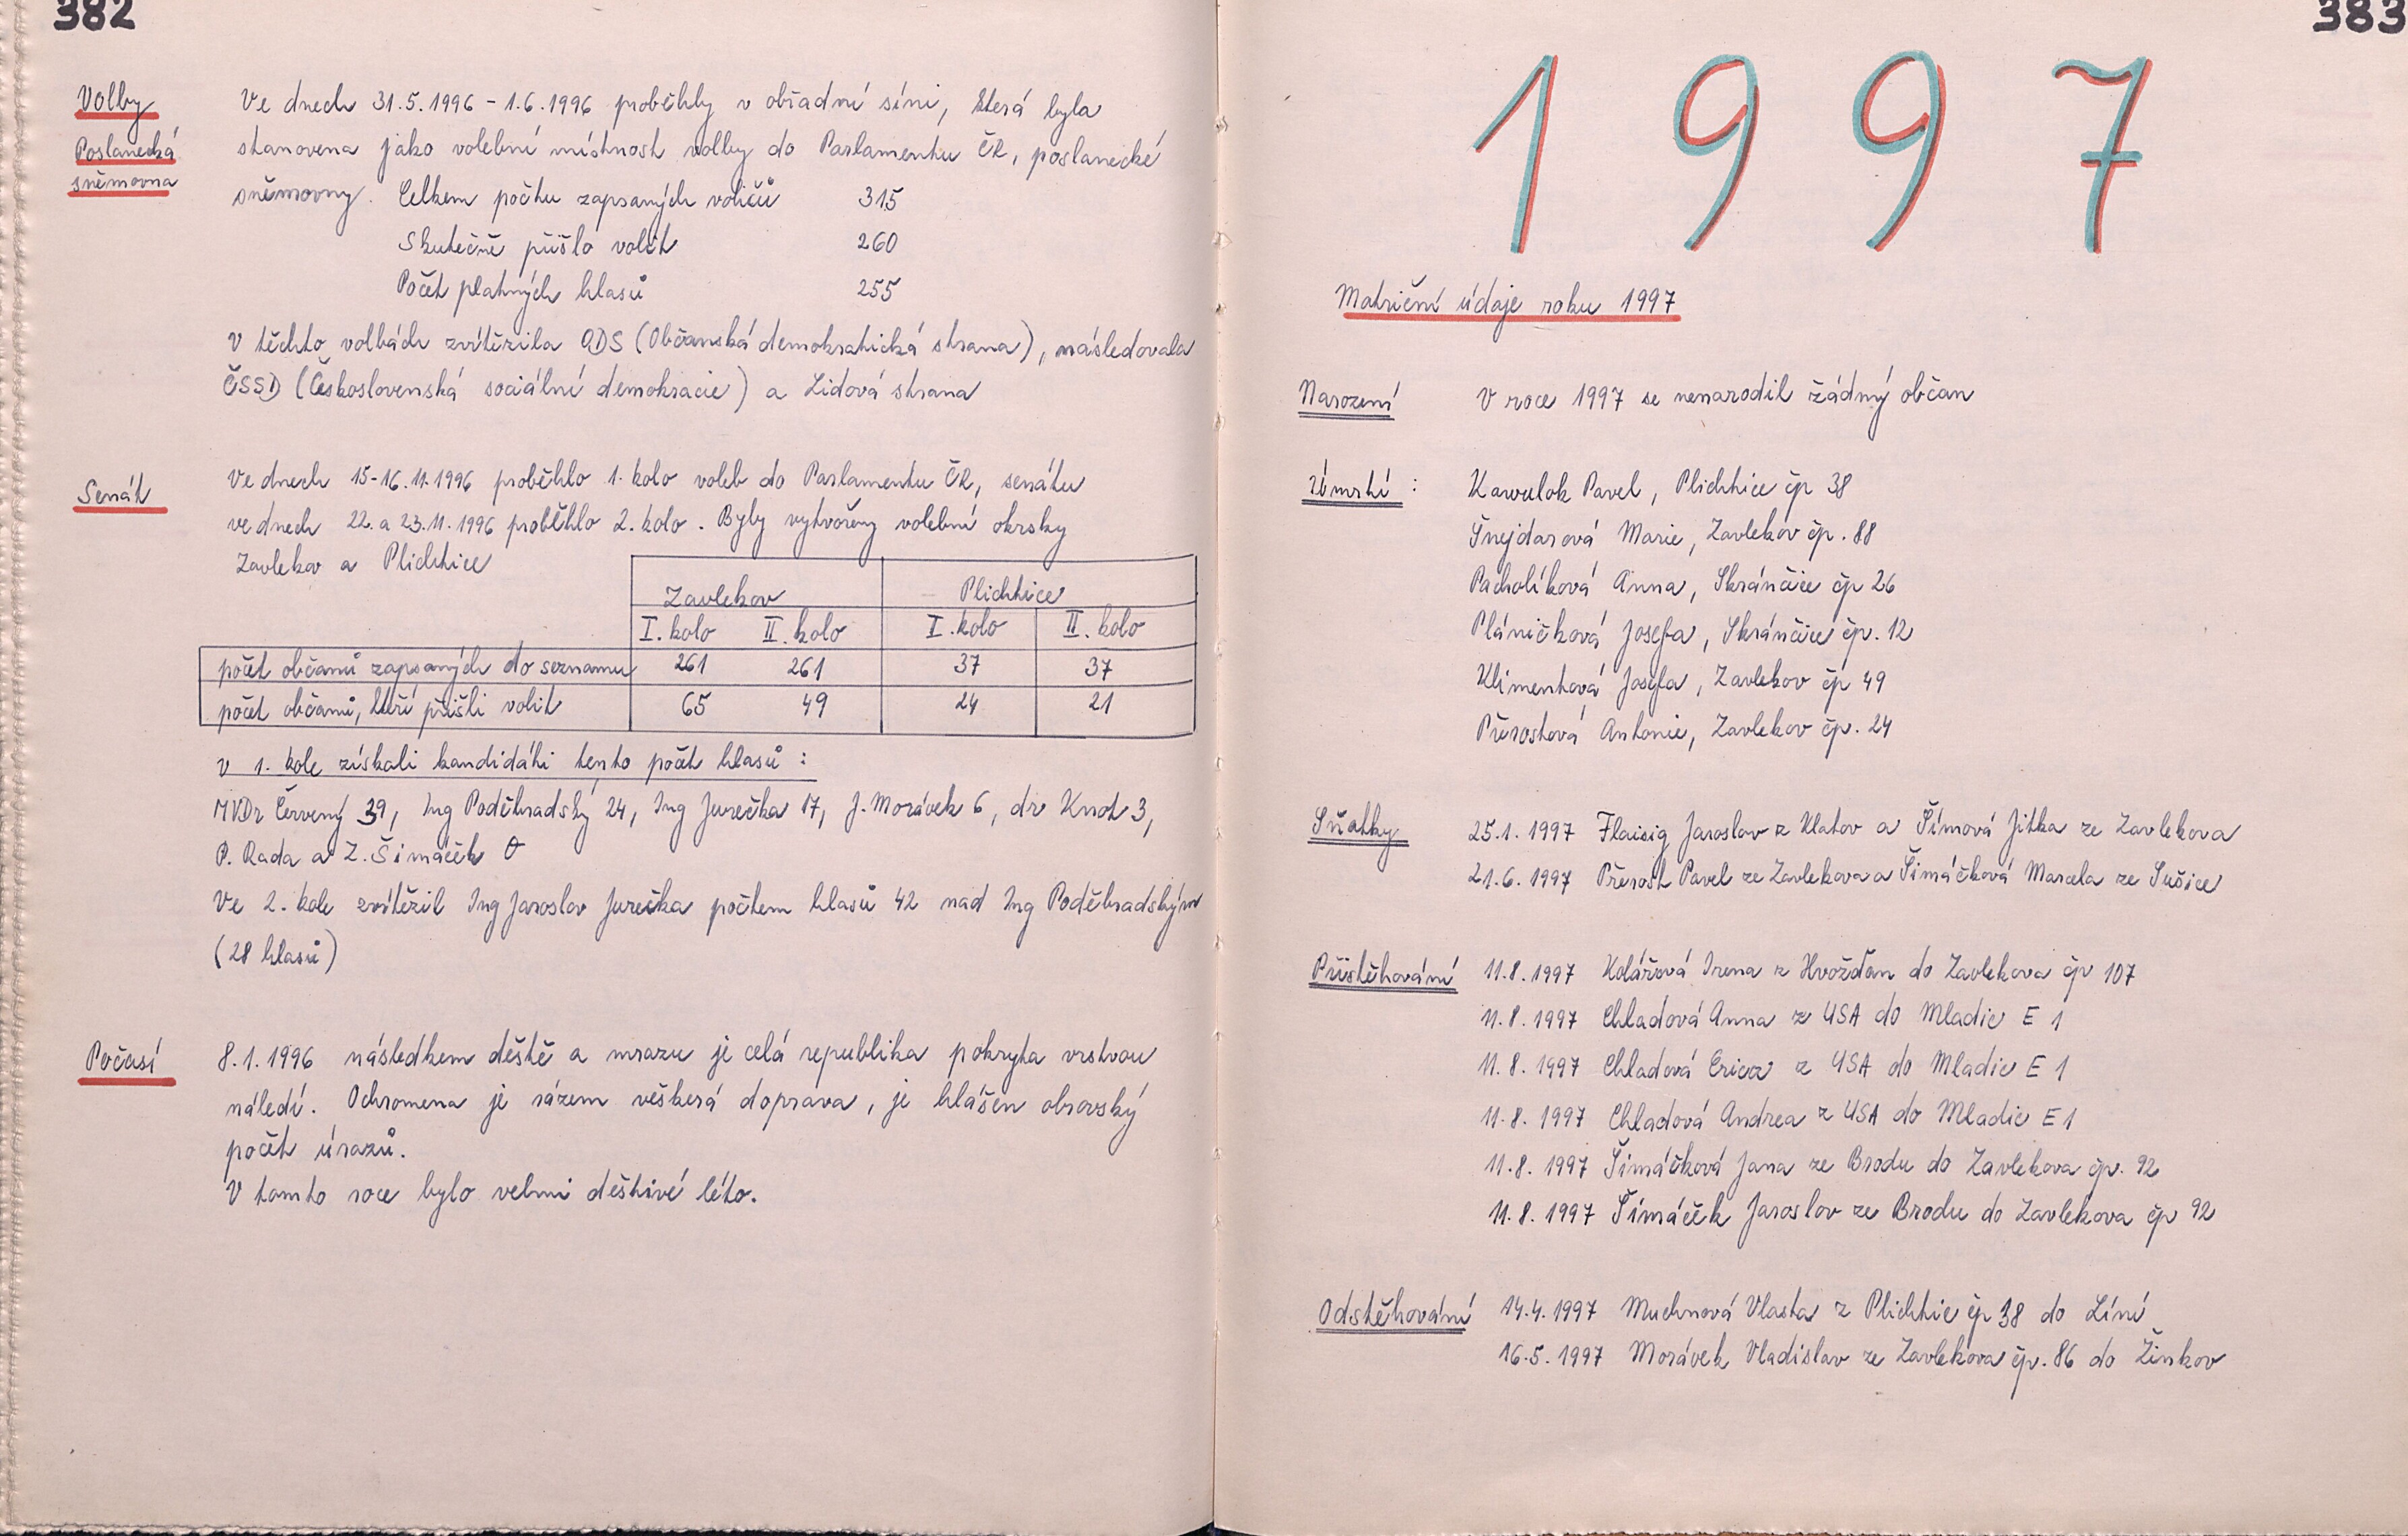 382
Volby
Poslanecká
sněmovna
Ve dnech 31.5.1996 - 1.6.1996 proběhly v obřadní síni, která byla
stanovena jako volební místnost volby do Parlamentu ČR, poslanecké
sněmovny. Celkem počtu zapsaných voličů 315
Skutečně přišlo volit 260
Počet platných hlasů 255
V těchto volbách zvítězila ODS (Občanská demokratická strana), následovala
ČSSD (Československá sociální demokracie) a Lidová strana
Senát
Ve dnech 15-16.11.1996 proběhlo 1. kolo voleb do Parlamentu ČR, senátu
ve dnech 22. a 23.11.1996 proběhlo 2. kolo. Byly vytvořeny volební okrsky
Zavlekov a Plichtice
Zavlekov Plichtice
I. kolo II. kolo I. kolo II. kolo
počet občanů zapsaných do seznamu 261 261 37 37
počet občanů, kteří přišli volit 65 49 24 21
v 1. kole získali kandidáti tento počet hlasů :
MVDr Červený 39, Ing Poděhradský 24, Ing Jurečka 17, J. Morávek 6, dr Knot 3,
P. Rada a Z. Šimáček 0
Ve 2. kole zvítězil Ing Jaroslav Jurečka počtem hlasů 42 nad Ing Poděhradským
(28 hlasů)
Počasí
8.1.1996 následkem deště a mrazu je celá republika pokryta vrstvou
náledí. Ochromena je rázem veškerá doprava, je hlášen obrovský
počet úrazů.
V tomto roce bylo velmi deštivé léto.
383
1997
Matriční údaje roku 1997
Narození V roce 1997 se nenarodil žádný občan
Úmrtí : Kawulok Pavel, Plichtice čp 38
Šnejdarová Marie, Zavlekov čp. 88
Pacholíková Anna, Skránčice čp 26
Pláničková Josefa, Skránčice čp. 12
Klimentová Josefa, Zavlekov čp 49
Přerostová Antonie, Zavlekov čp. 24
Sňatky 25.1.1997 Flaisig Jaroslav z Klatov a Šímová Jitka ze Zavlekova
21.6.1997 Přerost Pavel ze Zavlekova a Šimáčková Marcela ze Sušice
Přistěhování 11.8.1997 Kolářová Irena z Hvožďan do Zavlekova čp 107
11.8.1997 Chladová Anna z USA do Mladic E 1
11.8.1997 Chladová Erica z USA do Mladic E 1
11.8.1997 Chladová Andrea z USA do Mladic E 1
11.8.1997 Šimáčková Jana ze Brodu do Zavlekova čp. 92
11.8.1997 Šimáček Jaroslav ze Brodu do Zavlekova čp 92
Odstěhování 14.4.1997 Muchnová Vlasta z Plichtic čp 38 do Líní
16.5.1997 Morávek Vladislav ze Zavlekova čp. 86 do Žinkov